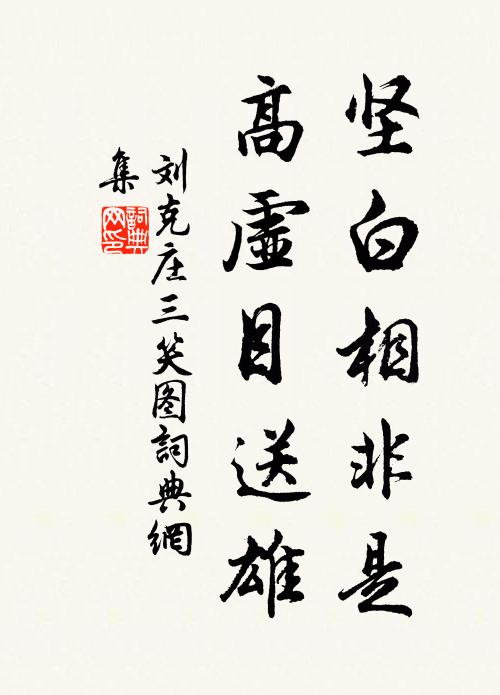 坚白相非是
高虚目送雄
刘克庄三笑图詞典網
集
詞典
网印